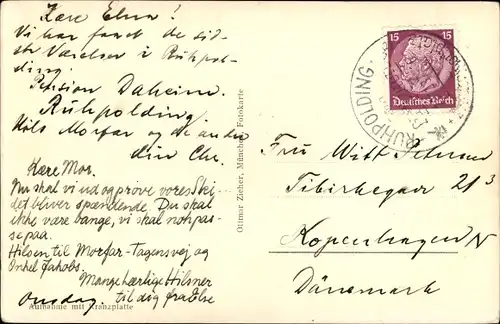 Kære Elna!
Vi har fundet de sid-
ste Værelser i Ruhpol-
ding.
Pension Daheim.
Ruhpolding.
Hils Morfar og de andre
din Chr.
Kære Mor.
Nu skal vi ud og prøve vores Ski
det bliver spændende. Du skal
ikke være bange, vi skal nok pas-
se paa.
Hilsen til Morfar-Tagensvej og
Onkel Jakobs.
Mange kærlige Hilsner
Onsdag. til dig fra Else
Aufnahme mit Kranzplatte
Ottmar Zieher, München Fotokarte
15 15
Deutsches Reich
RUHPOLDING
Fru Witt Petersen
Tibirkegar 21³
Kopenhagen N
Dänemark